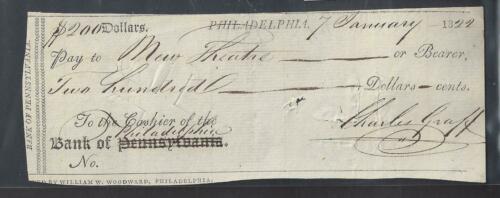 $200 Dollars. PHILADELPHIA, 7 January 1822
Pay to New Theatre or Bearer,
Two hundred Dollars cents.
To the Cashier of the
Philadelphia
Bank of Pennsylvania.
Charles Graff
No.
BANK OF PENNSYLVANIA.
ED BY WILLIAM W. WOODWARD, PHILADELPHIA: